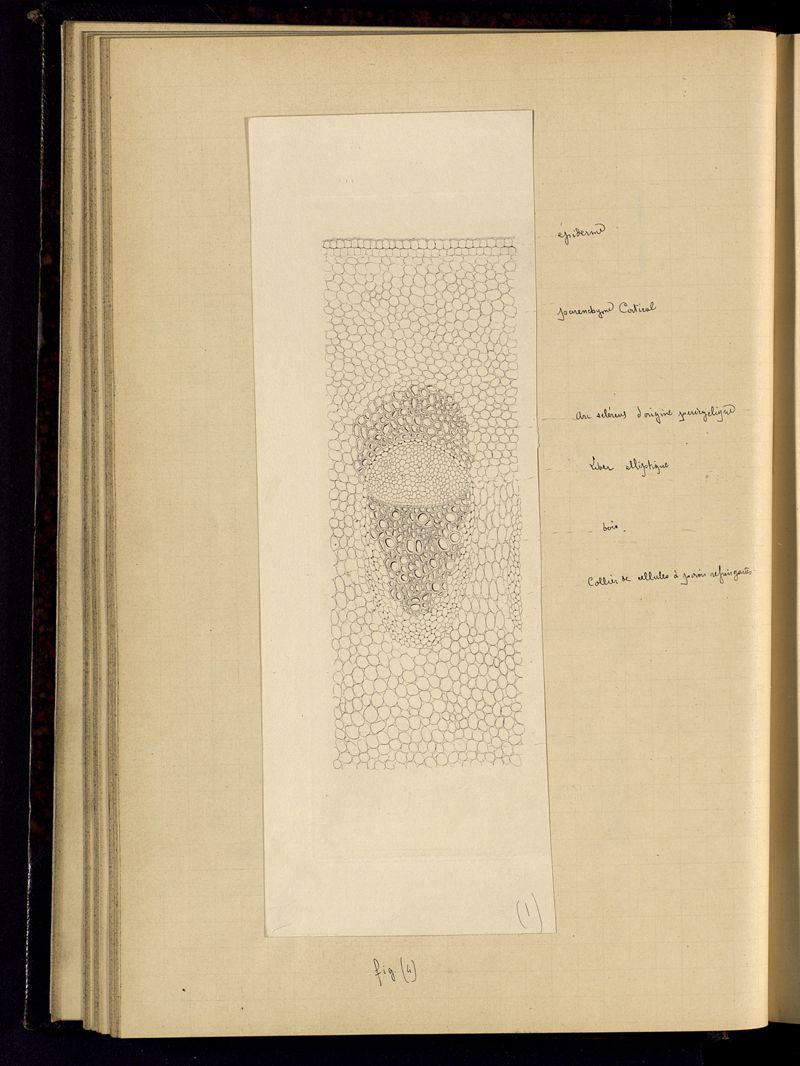 épiderme
parenchyme Cortical
Arc scléreux d'origine péricyclique
Liber elliptique
bois.
Collier de cellules à parois réfringentes
(1)
fig. (4)